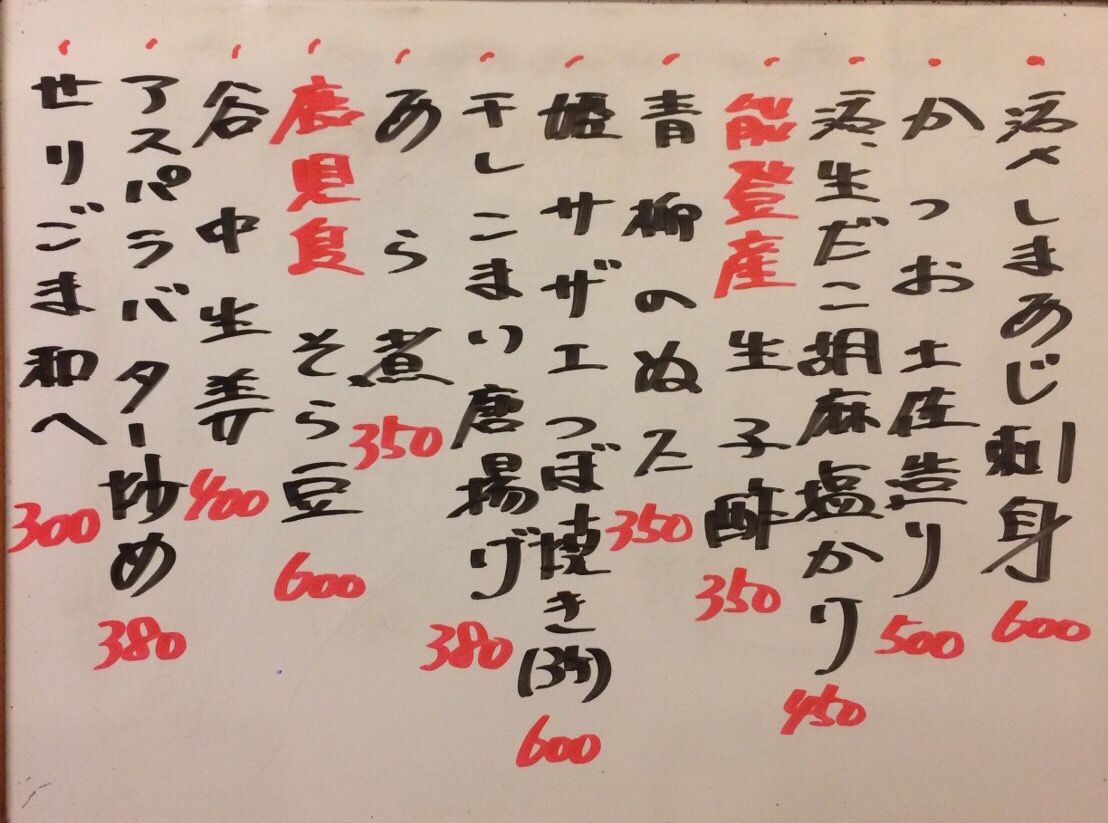 活〆しまあじ刺身 600
かつお土佐造り 500
活、生だこ胡麻塩かり 450
能登産 生子酢 350
青柳のぬた 350
姫サザエつぼ焼き(3ケ) 600
干しこまい唐揚げ 380
あら煮 350
鹿児島 そら豆 600
谷中生姜 400
アスパラバター炒め 380
せりごま和へ 300